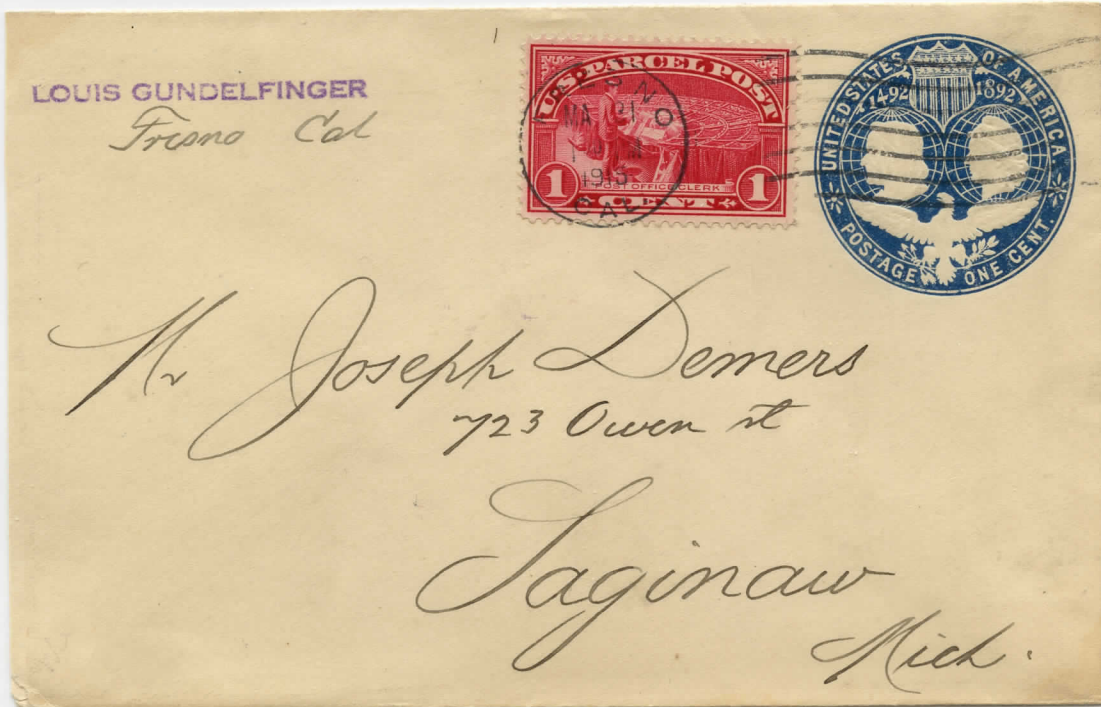 LOUIS GUNDELFINGER
Fresno Cal
U.S. PARCEL POST
1 POST OFFICE CLERK 1
CENT
FRESNO
1913
CAL
UNITED STATES OF AMERICA
1492 1892
POSTAGE ONE CENT.
Mr Joseph Demers
723 Owen st
Saginaw
Mich.